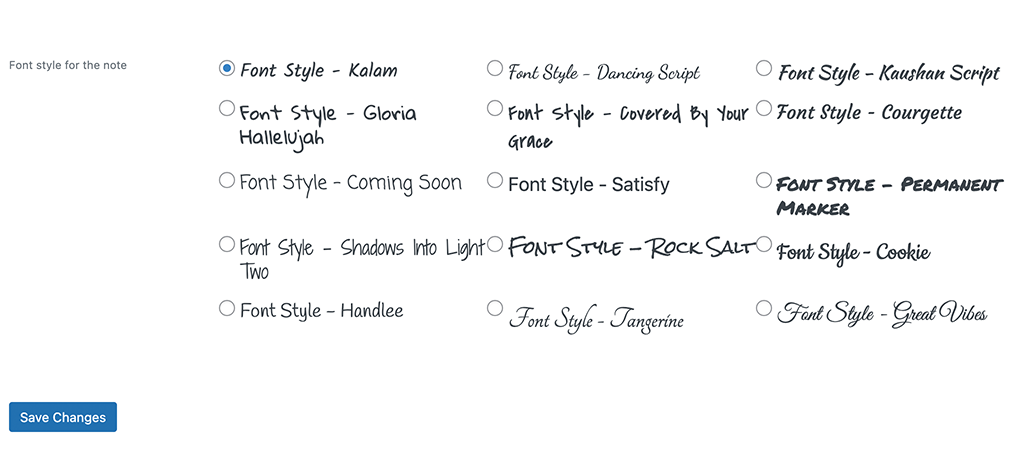 Font style for the note
Font Style - Kalam
Font Style - Dancing Script
Font Style - Kaushan Script
Font Style - Gloria
Hallelujah
Font Style - Covered By Your
Grace
Font Style - Courgette
Font Style - Coming Soon
Font Style - Satisfy
Font Style - Permanent
Marker
Font Style - Shadows Into Light
Two
Font Style - Rock Salt
Font Style - Cookie
Font Style - Handlee
Font Style - Tangerine
Font Style - Great Vibes
Save Changes